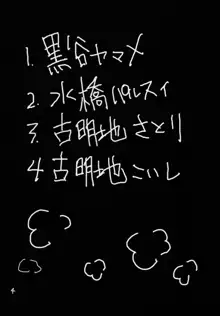 1. 黒谷ヤマメ
2. 水橋パルスィ
3. 古明地さとり
4 古明地こいし